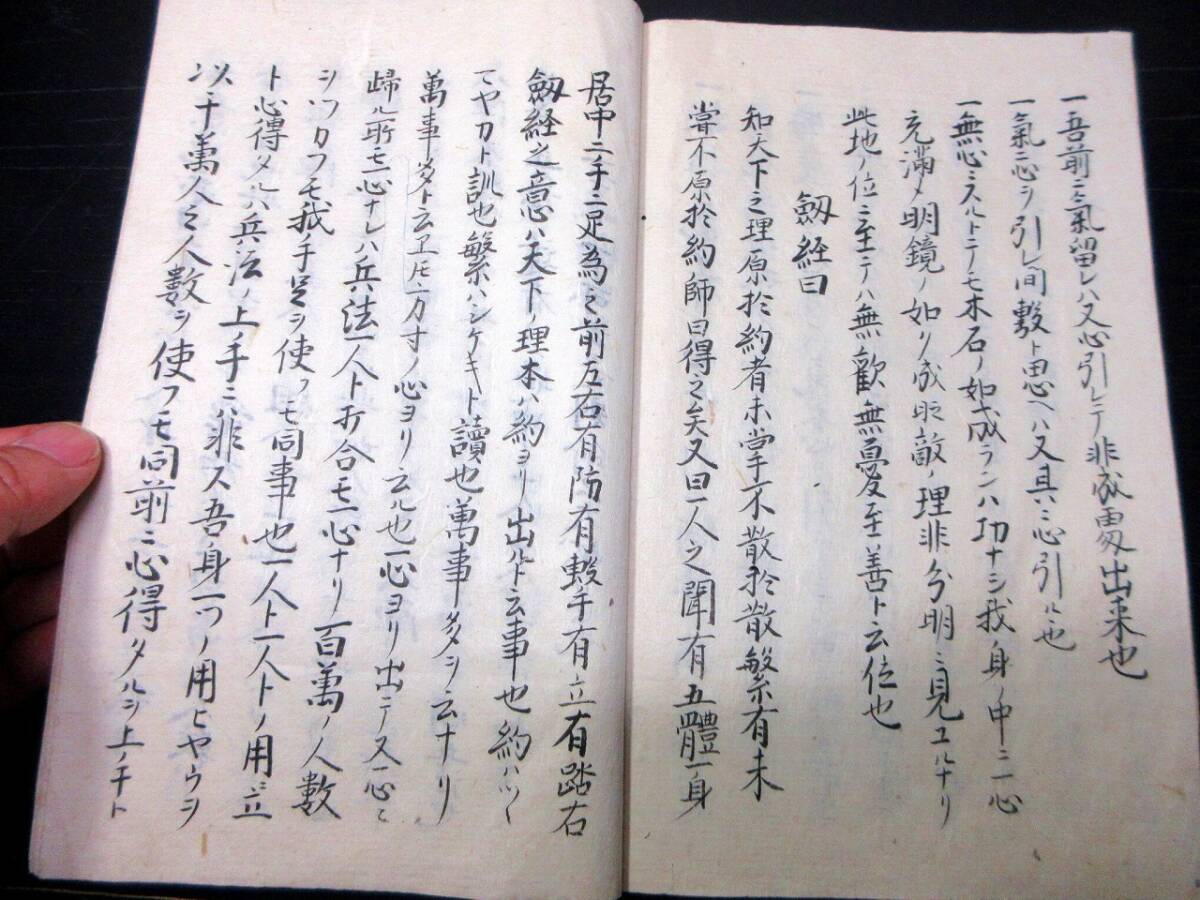 一吾前ニ氣留レハ又心引レテ非成雷出来也
一氣ニ心ヲ引レ間敷ト思ヘハ又其ニ心引ル也
一無心ニスルトテモ木石ノ如成ランハ功ナシ我身ノ中ニ一心
充満メ明鏡ノ如ク成敵ノ理非分明ニ見ユルナリ
此地ノ位ニ至テハ無歡無憂至善ト云位也
劔経曰
知天下之理原於約者未掌不散於散繁有未
嘗不原於約師曰得之矣又曰一人之聞有五體一身
居中二手二足為之前左右有防有蝦手有立有踏右
劔経之意ハ天下ノ理本ハ約ヨリ出ルト云事也約ハツヽ
てヤカト訓也繁ハシケキト讀也萬事多ヲ云ナリ
萬事多ト云ヱ𪜈一方寸ノ心ヨリ云ル也一心ヨリ出テ又一心ニ
歸ル所モ一心ナレハ兵法一人ト打合モ一心ナリ百萬ノ人數
ヲツカフモ我手足ヲ使フモ同事也一人ト一人トノ用立
ト心得タルハ兵法ノ上ノ手ニハ非ス吾身一ツノ用ヒヤウヲ
以千萬人之人數ヲ使フモ同前ニ心得タルヲ上ノ手ト